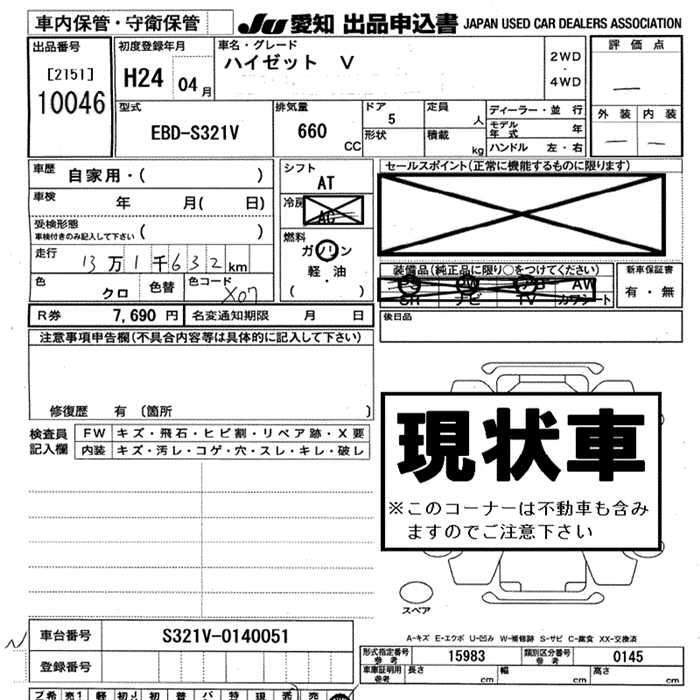 車内保管・守衛保管 JU 愛知 出品申込書 JAPAN USED CAR DEALERS ASSOCIATION
出品番号 初度登録年月 車名・グレード 評価点
[2151] 10046 H24 04月 ハイゼット V 2WD・4WD —
型式 排気量 ドア 定員 ディーラー・並行 外装 内装
EBD-S321V 660 CC 5 人 モデル年式 年 — —
形状 積載 kg ハンドル 左・右
車歴 自家用・( ) シフト AT セールスポイント(正常に機能するものに限ります)
車検 年 月( 日) 冷房 AC
受検形態 車検付きのみ記入して下さい ( ) 燃料 ガソリン・軽・油 ( )
走行 13万1千632km 装備品(純正品に限り○をつけてください) 新車保証書
色 クロ 色替 色コード X07 PS PW AB AW 有・無
SR ナビ TV カワシート
R券 7,690円 名変通知期限 月 日 後日品
注意事項申告欄(不具合内容等は具体的に記入して下さい)
修復歴 有 〔箇所 〕
検査員記入欄 FW キズ・飛石・ヒビ割・リペア跡・X要
内装 キズ・汚レ・コゲ・穴・スレ・キレ・破レ
現状車
※このコーナーは不動車も含み
ますのでご注意下さい
スペア
A-キズ E-エクボ U-凹み W-補修跡 S-サビ C-腐食 XX-交換済
車台番号 S321V-0140051 形式指定番号 参考 15983 類別区分番号 参考 0145
登録番号 車庫証明用 参考 長さ cm 幅 cm 高さ cm